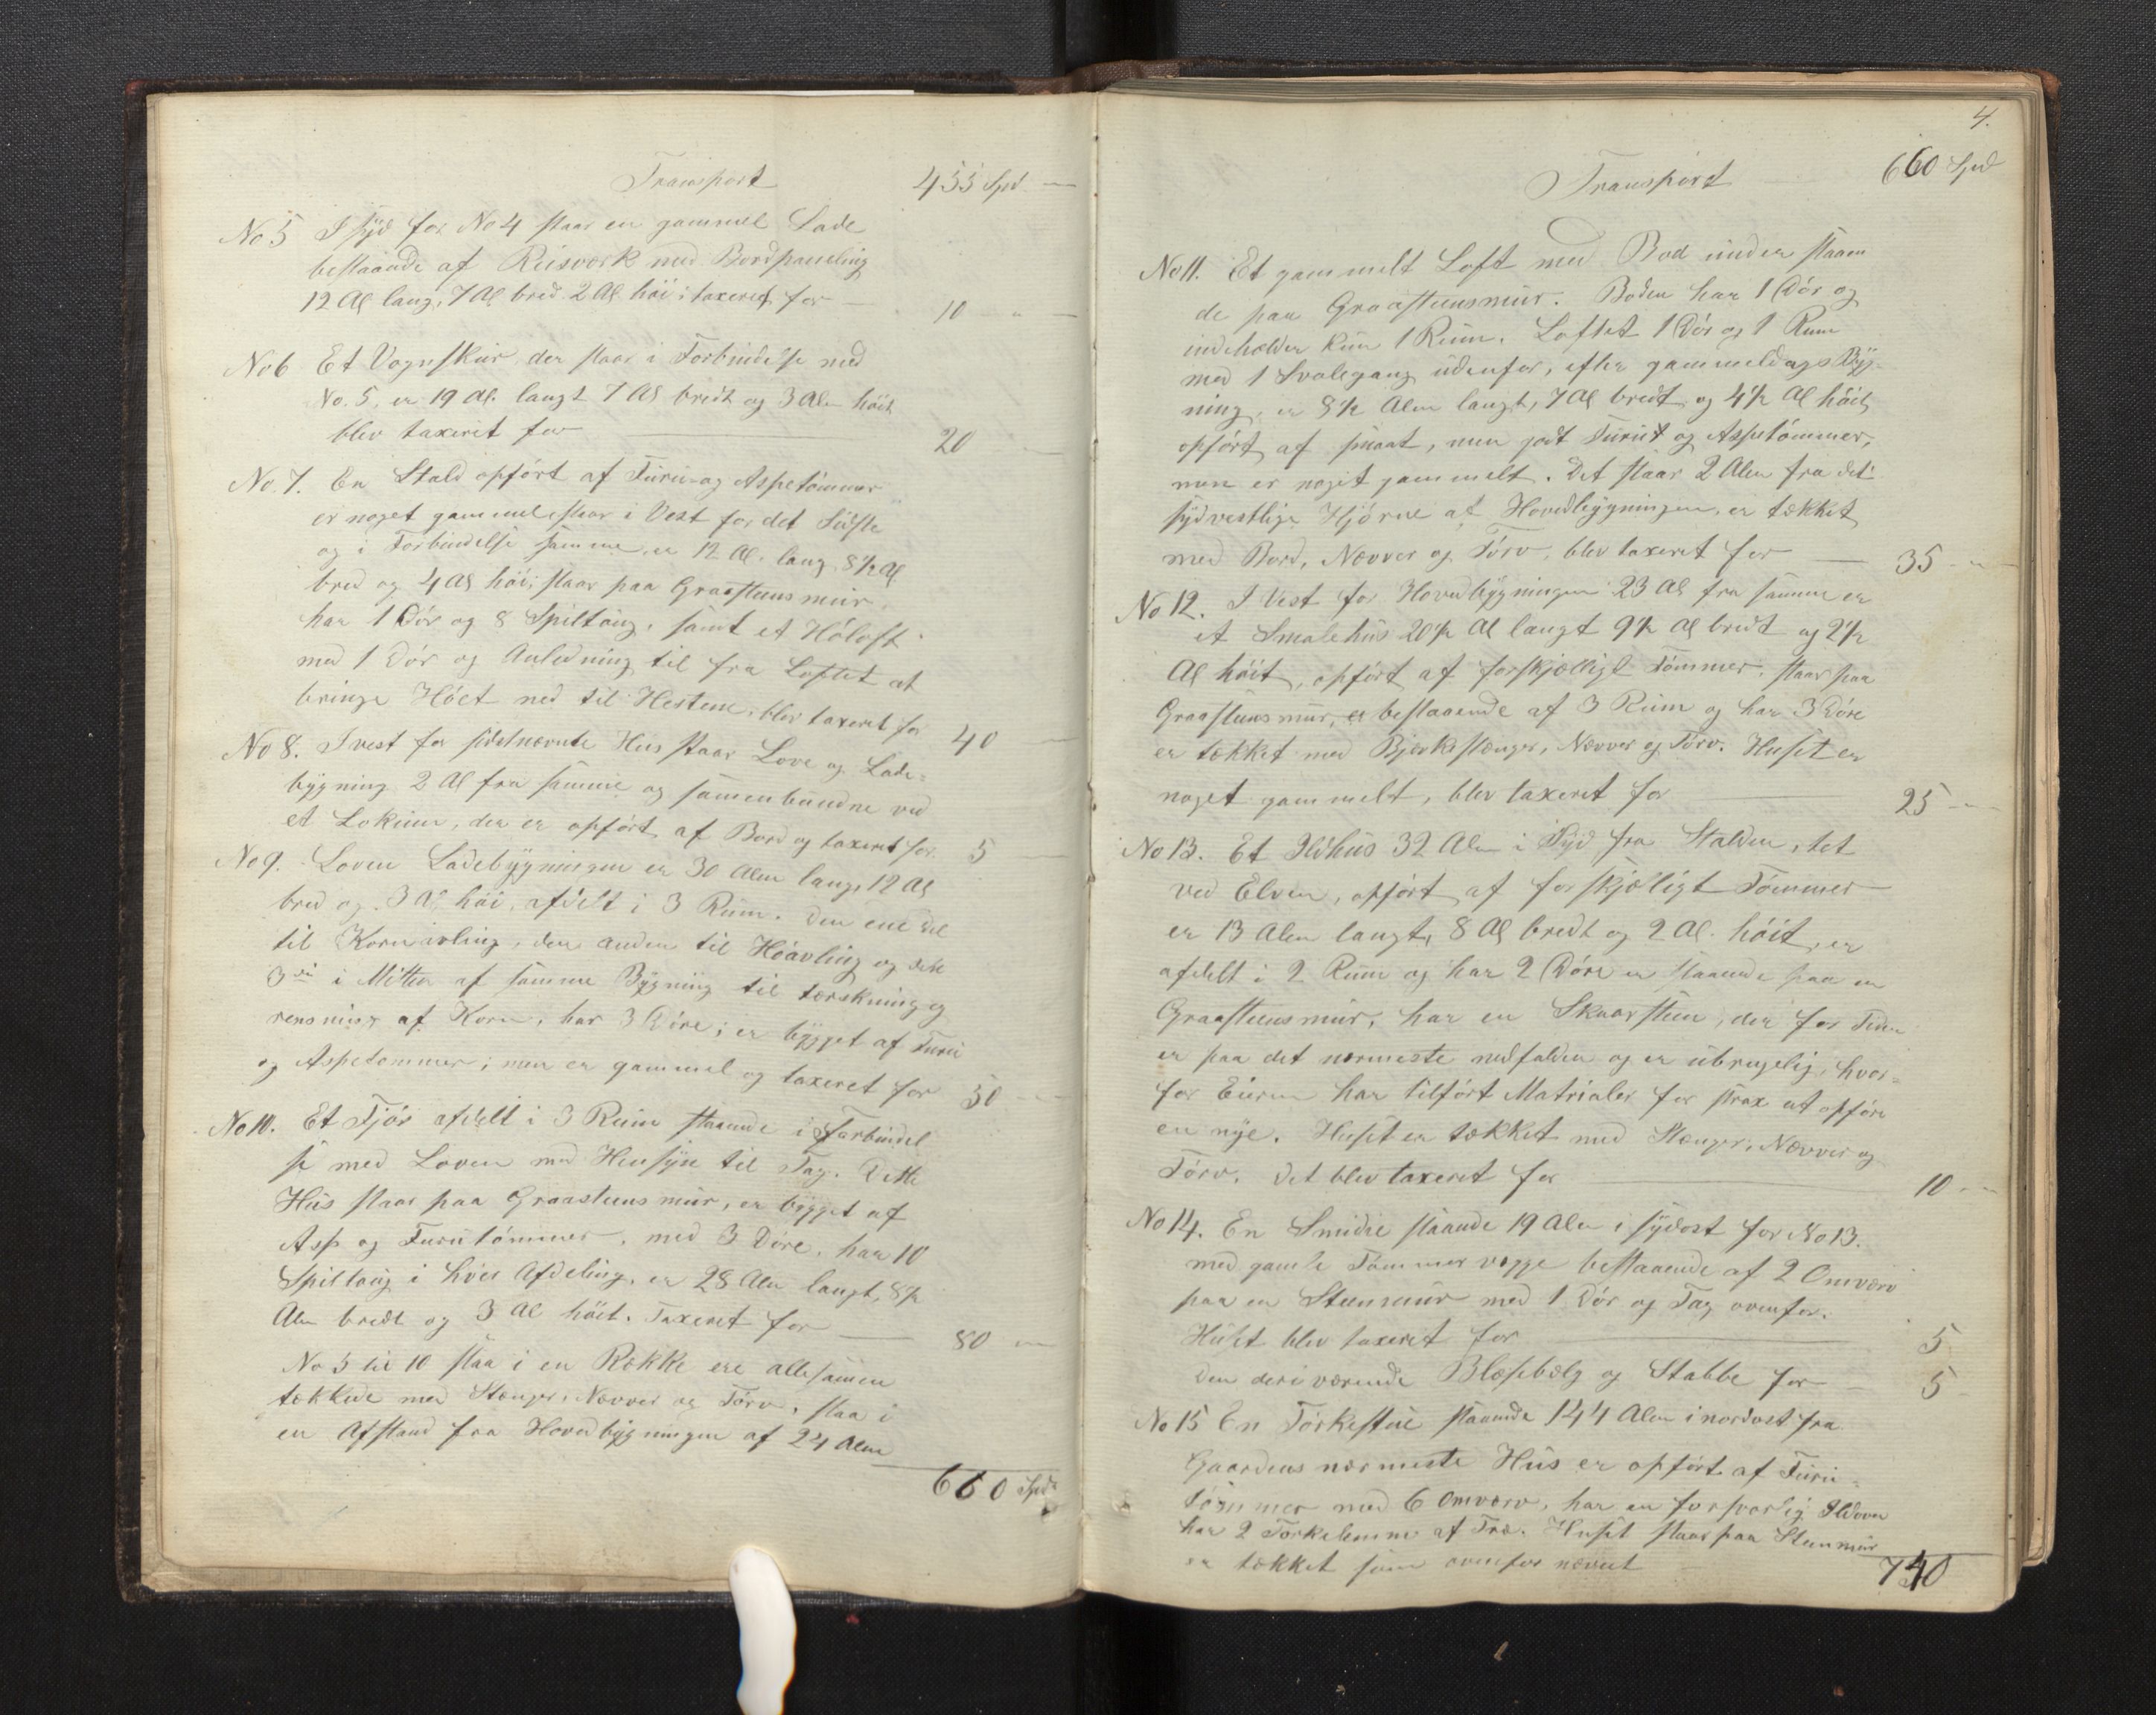 Transport 455 Spd
No 5 I Syd for No 4 staar en gammel Lade
bestaaende af Reisværk med Bordpaneling
12 Al lang, 7 Al bred 2 Al höi; taxeret for 10
No 6 Et Vognskur, der staar i Forbindelse med
No. 5, er 19 Al. langt 7 Al bredt og 3 Alen höit
blev taxeret for 20
No. 7. En Stald opfört af Furu- og Aspetömmer
er noget gammel, staar i Vest for det Sidste
og i Forbindelse samme, er 12 Al. lang, 8 1/2 Al
bred og 4 Al höi; staar paa Graasteensmúr
har 1 Dör og 8 Spiltoug, samt et Höloft
med 1 Dör og Anledning til fra Loftet at
bringe Höet ned til Hestene, blev taxeret for 40
No 8. I vest for sidstnævnte Hus staar Love og Lade-
bygning 2 Al fra samme og samenbundne ved
et Lokum, der er opfört af Bord og taxeret for 5
No 9. Loven Ladebygningen er 30 Alen lang, 12 Al
bred og 3 Al höi, afdelt i 3 Rum. den ene del
til Kornavling, den anden til Höavling og det
3die i Mitten af samme Bygning til tærskning og
rensning af Korn, har 3 Döre; er bygget af Furu
og Aspetommer; men er gammel og taxeret for 50
No 10. Et Fjös afdelt i 3 Rum staaende i Forbindel
se med Loven med Hensyn til Tag. Dette
Hus staar paa Graasteensmur, er bygget af
Asp og Furutömmer, med 3 Döre, har 10
Spiltoug i hver Afdeling, er 28 Alen langt, 8 1/2
Alen bredt og 3 Al höit. Taxeret for 80
No 5 til 10 staa i en Række ere allesamen
tækkede med Stænger, Næver og Törv, staa i
en Afstand fra Hovedbygningen af 24 Alen
660 Spd
4.
Transport 660 Spd
No 11. Et gammelt Loft med Bod under staaen
de paa Graasteensmur. Boden har 1 Dör og
indeholder kun 1 Rum. Loftet 1 Dör og 1 Rum
med 1 Svalegang udenfor, efter gammeldags Byg-
ning, er 8 1/2 Alen langt, 7 Al bredt og 4 1/2 Al höit
opfört af smaat, men godt Furu og Aspetömmer,
men er noget gammelt. Det staar 2 Alen fra det
sydvestlige Hjörne af Hovedbygningen, er tækket
med Bord, Nævver og Törv, blev taxeret for 35
No 12. I Vest for Hovedbygningen 23 Al fra samme er
et Smalehus 20 1/2 Al langt 9 1/2 Al bredt og 2 1/2
Al höit, opfört af forskjælligt Tömmer, staar paa
Graasteensmur, er bestaaende af 3 Rum og har 3 Döre
er tækket med Bjerkestænger, Nævver og Törv. Huset er
noget gammelt, blev taxeret for 25
No 13. Et Ildhus 32 Alen i Syd fra Stalden, tet
ved Elven, opfört af forskjælligt Tömmer
er 13 Alen langt, 8 Al bredt og 2 Al. höit, er
afdelt i 2 Rum og har 2 Döre er staaende paa en
Graasteensmur, har en Skaarsteen, der for Tiden
er paa det nærmeste nedfalden og er ubrugelig, hvor-
for Eieren har tilfört Matrialer for strax at opföre
en nye. Huset er tækket med Stænger, Nævver og
Törv. det blev taxeret for 10
No 14. En Smidie staaende 19 Alen i sydost for No 13.
med gamle Tömmer vegge bestaaende af 2 Omværv
paa en Steenmur med 1 Dör og Tag ovenfor.
Huset blev taxeret for 5
Den deri værende Blæsebælg og Stabbe for 5
No 15 En Törkestue staaende 144 Alen i nordost fra
Gaardens nærmeste Hus er opfört af Furu-
tömmer med 6 Omværv, har en forsvarlig Ildovn
har 2 Törkelemme af Træ. Huset staar paa Steenmur
er tækket som ovenfor nævnt
740